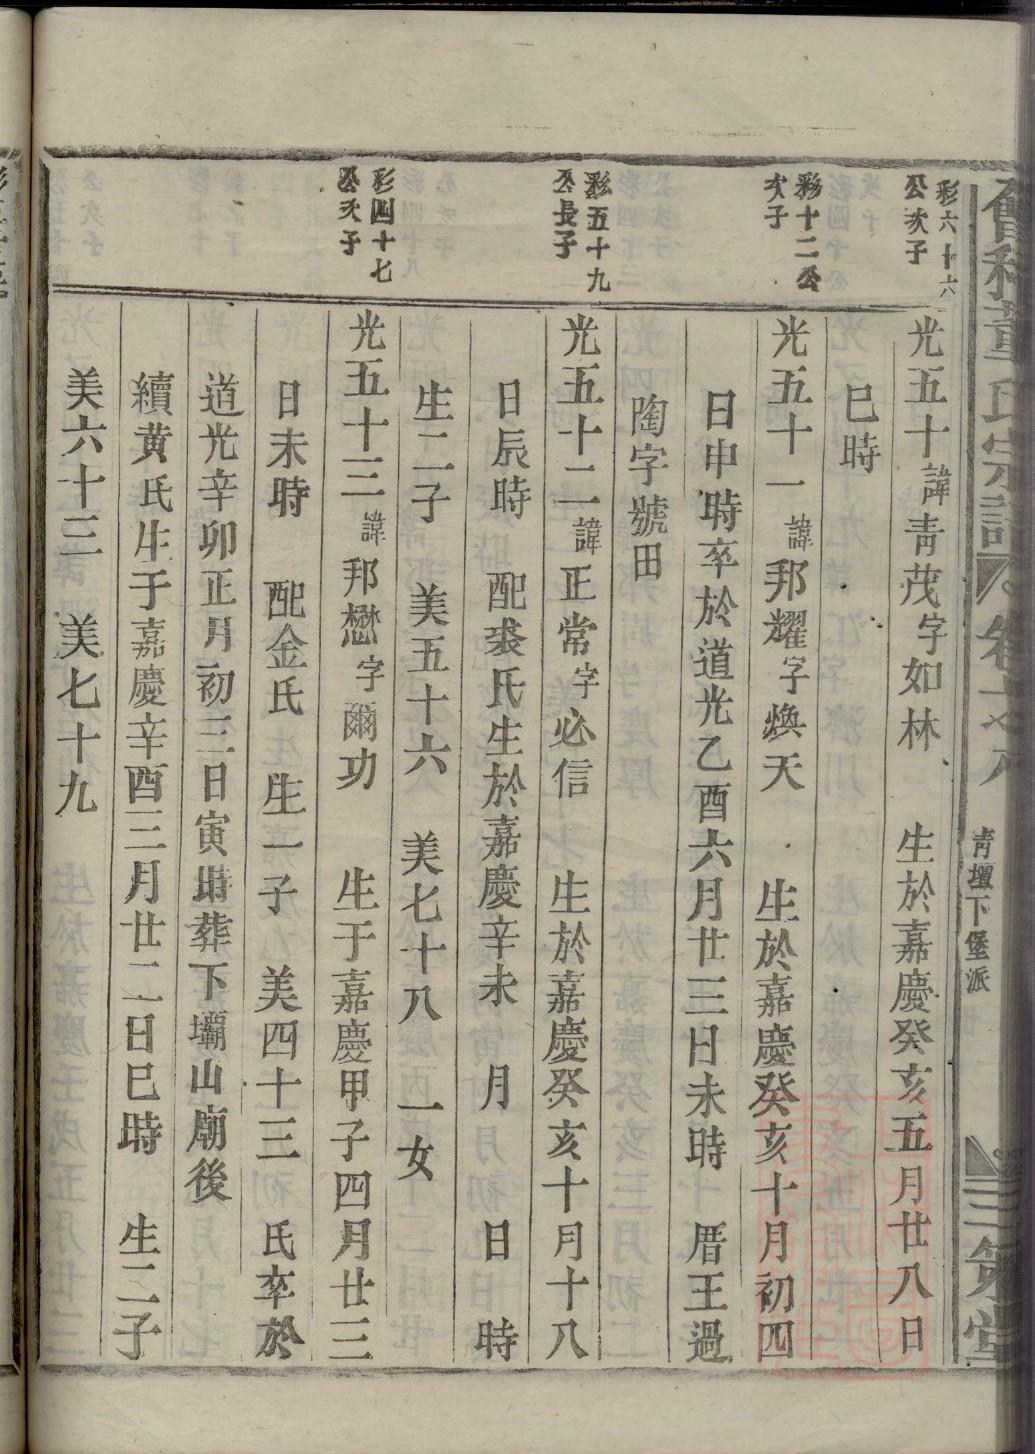 董氏宗譜
青壇下堡派
三策堂
彩六十六
公次子
光五十諱靑茂字如林 生於嘉慶癸亥五月廿八日
巳時
彩十二公
次子
光五十一諱邦耀字煥天 生於嘉慶癸亥十月初四
日申時卒於道光乙酉六月廿三日未時 厝王過
陶字號田
彩五十九
公長子
光五十二諱正常字必信 生於嘉慶癸亥十月十八
日辰時 配裘氏生於嘉慶辛未 月 日 時
生二子 美五十六 美七十八 一女
彩四十七
公次子
光五十三諱邦懋字爾功 生于嘉慶甲子四月廿三
日未時 配金氏 生一子 美四十三 氏卒於
道光辛卯正月初三日寅時葬下壩山廟後
續黃氏生于嘉慶辛酉三月廿二日巳時 生二子
美六十三 美七十九